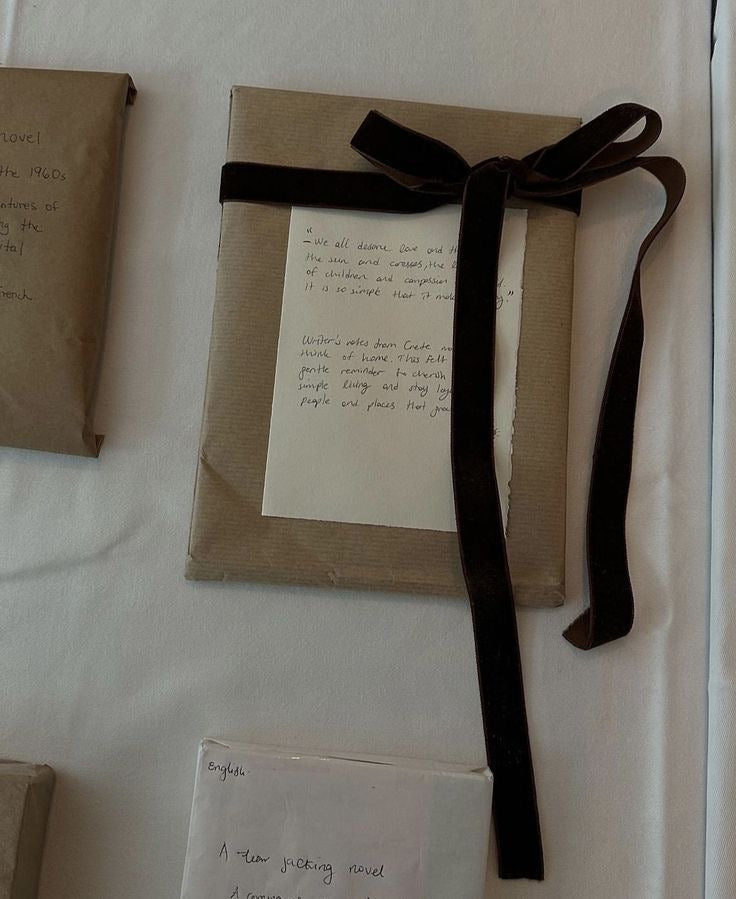 novel
the 1960s
ntures of
g the
ital
rench
"
– We all deserve love and th
the sun and caresses, the
of children and compassion d.
It is so simple that it mak g."
Writer's notes from Crete
think of home. This felt
gentle reminder to cherish
simple living and stay
people and places that
English
A tear jacking novel
A